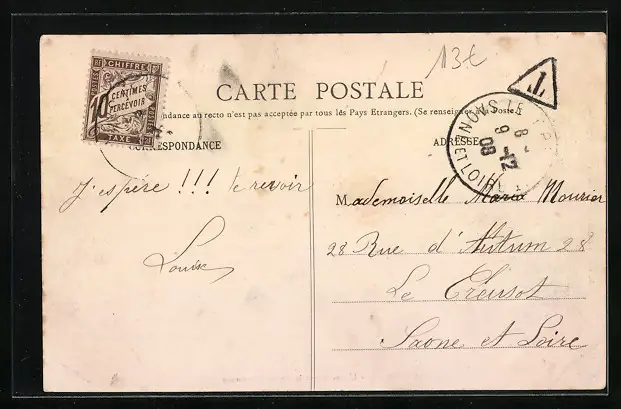 13€
CHIFFRE
10 CENTIMES
À PERCEVOIR
TAXE
T
CARTE POSTALE
dance au recto n'est pas acceptée par tous les Pays Etrangers. (Se renseigner à la Poste.)
CORRESPONDANCE
ADRESSE
NUNS LE
8-12
09
J'espère !!! te revoir
Louise
Mademoiselle Maria Mourier
28 Rue d'Autum 28
Le Creusot
Saone et Loire